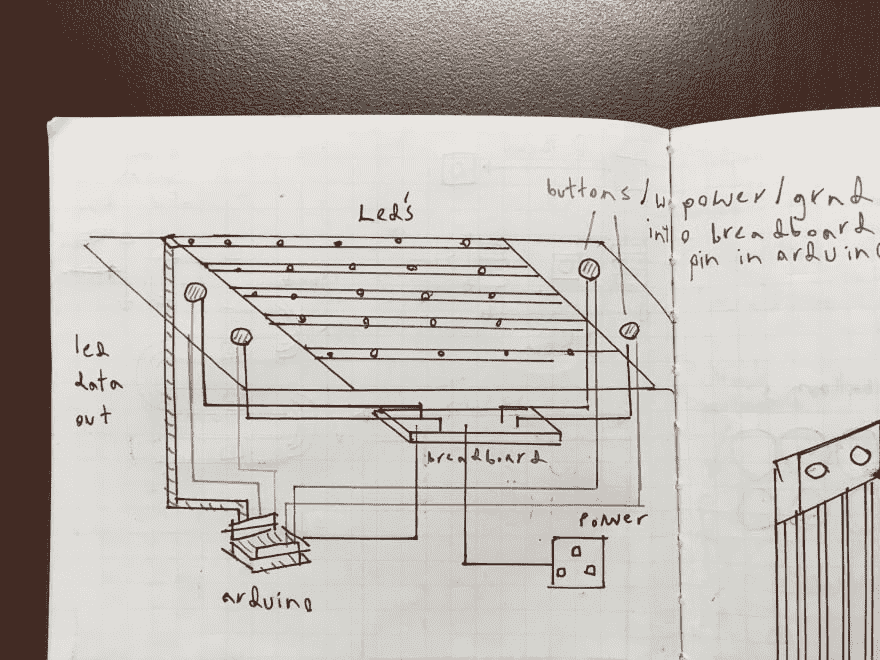 Led's
buttons / w power/grnd
into breadboard
pin in arduino
led
data
out
breadboard
Power
arduino